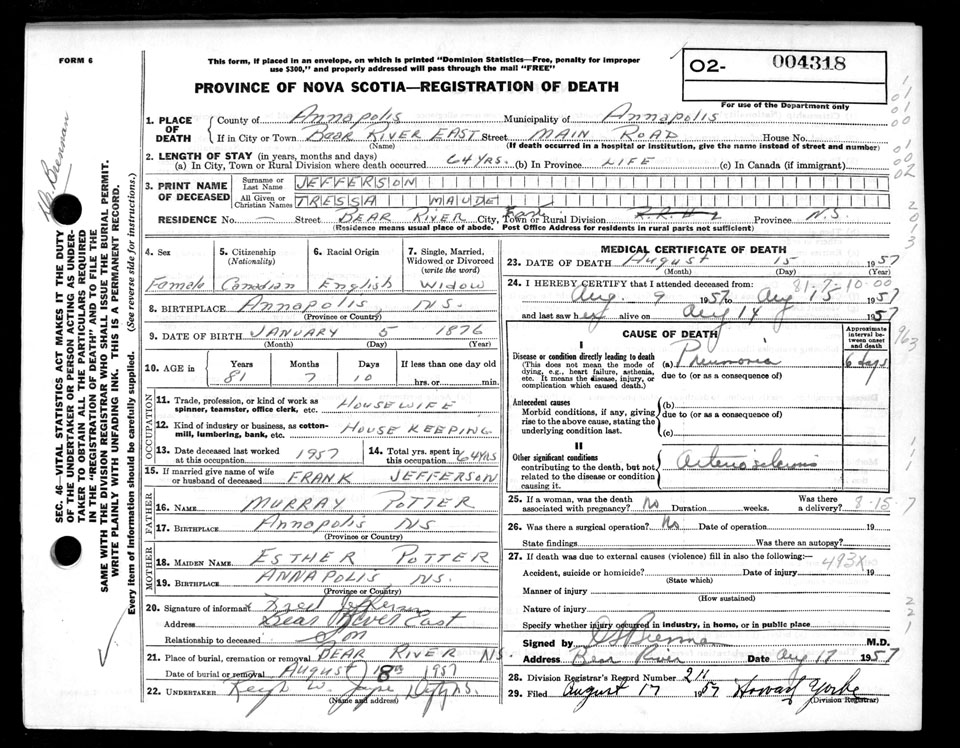 FORM 6
This form, if placed in an envelope, on which is printed "Dominion Statistics—Free, penalty for improper
use $300," and properly addressed will pass through the mail "FREE"
O2- 004318
For use of the Department only
PROVINCE OF NOVA SCOTIA—REGISTRATION OF DEATH
SEC. 46—VITAL STATISTICS ACT MAKES IT THE DUTY
OF THE UNDERTAKER OR PERSON ACTING AS UNDER-
TAKER TO OBTAIN ALL THE PARTICULARS REQUIRED
IN THE "REGISTRATION OF DEATH" AND TO FILE THE
SAME WITH THE DIVISION REGISTRAR WHO SHALL ISSUE THE BURIAL PERMIT.
WRITE PLAINLY WITH UNFADING INK. THIS IS A PERMANENT RECORD.
Every item of Information should be carefully supplied. (See reverse side for instructions.)
1. PLACE OF DEATH
County of Annapolis Municipality of Annapolis
If in City or Town BEAR RIVER EAST Street MAIN ROAD House No.
(Name) (If death occurred in a hospital or institution, give the name instead of street and number)
2. LENGTH OF STAY (in years, months and days)
(a) In City, Town or Rural Division where death occurred 64 YRS. (b) In Province LIFE (c) In Canada (if immigrant)
3. PRINT NAME OF DECEASED
Surname or Last Name JEFFERSON
All Given or Christian Names TRESSA MAUDE
RESIDENCE No. — Street BEAR RIVER City, Town or Rural Division East Province N.S.
(Residence means usual place of abode. Post Office Address for residents in rural parts not sufficient)
4. Sex
Female
5. Citizenship (Nationality)
Canadian
6. Racial Origin
English
7. Single, Married, Widowed or Divorced (write the word)
WIDOW
8. BIRTHPLACE ANNAPOLIS N.S.
(Province or Country)
9. DATE OF BIRTH JANUARY 5 1876
(Month) (Day) (Year)
10. AGE in Years Months Days If less than one day old
81 7 10 hrs. or min.
OCCUPATION
11. Trade, profession, or kind of work as spinner, teamster, office clerk, etc. HOUSEWIFE
12. Kind of industry or business, as cotton-mill, lumbering, bank, etc. HOUSE KEEPING
13. Date deceased last worked at this occupation 1957
14. Total yrs. spent in this occupation 64 YRS
15. If married give name of wife or husband of deceased FRANK JEFFERSON
FATHER
16. NAME MURRAY POTTER
17. BIRTHPLACE ANNAPOLIS NS
(Province or Country)
MOTHER
18. MAIDEN NAME ESTHER POTTER
19. BIRTHPLACE ANNAPOLIS, NS.
(Province or Country)
20. Signature of informant Jefferson
Address Bear River East
Relationship to deceased Son
21. Place of burial, cremation or removal BEAR RIVER NS.
Date of burial or removal AUGUST 18th 1957
22. UNDERTAKER W. N.S.
(Name and address)
MEDICAL CERTIFICATE OF DEATH
23. DATE OF DEATH August 15 1957
(Month) (Day) (Year)
81-7-10-00
24. I HEREBY CERTIFY that I attended deceased from:
Aug. 9 1957 to Aug 15 1957
and last saw her alive on Aug 14 1957
CAUSE OF DEATH
Approximate interval between onset and death
I
Disease or condition directly leading to death
(This does not mean the mode of dying, e.g., heart failure, asthenia, etc. It means the disease, injury, or complication which caused death.)
(a) Pneumonia 6 days
due to (or as a consequence of)
Antecedent causes
Morbid conditions, if any, giving rise to the above cause, stating the underlying condition last.
(b)
due to (or as a consequence of)
(c)
II
Other significant conditions
contributing to the death, but not related to the disease or condition causing it.
Arteriosclerosis
25. If a woman, was the death associated with pregnancy? No Duration weeks. Was there a delivery? 8-15-7
26. Was there a surgical operation? No Date of operation 19
State findings Was there an autopsy?
27. If death was due to external causes (violence) fill in also the following:— 493X
Accident, suicide or homicide? Date of injury 19
(State which)
Manner of injury
(How sustained)
Nature of injury
Specify whether injury occurred in industry, in home, or in public place
Signed by M.D.
Address Bear River Date Aug 17 1957
28. Division Registrar's Record Number 211
29. Filed August 17 1957 Howard Yorke
(Division Registrar)